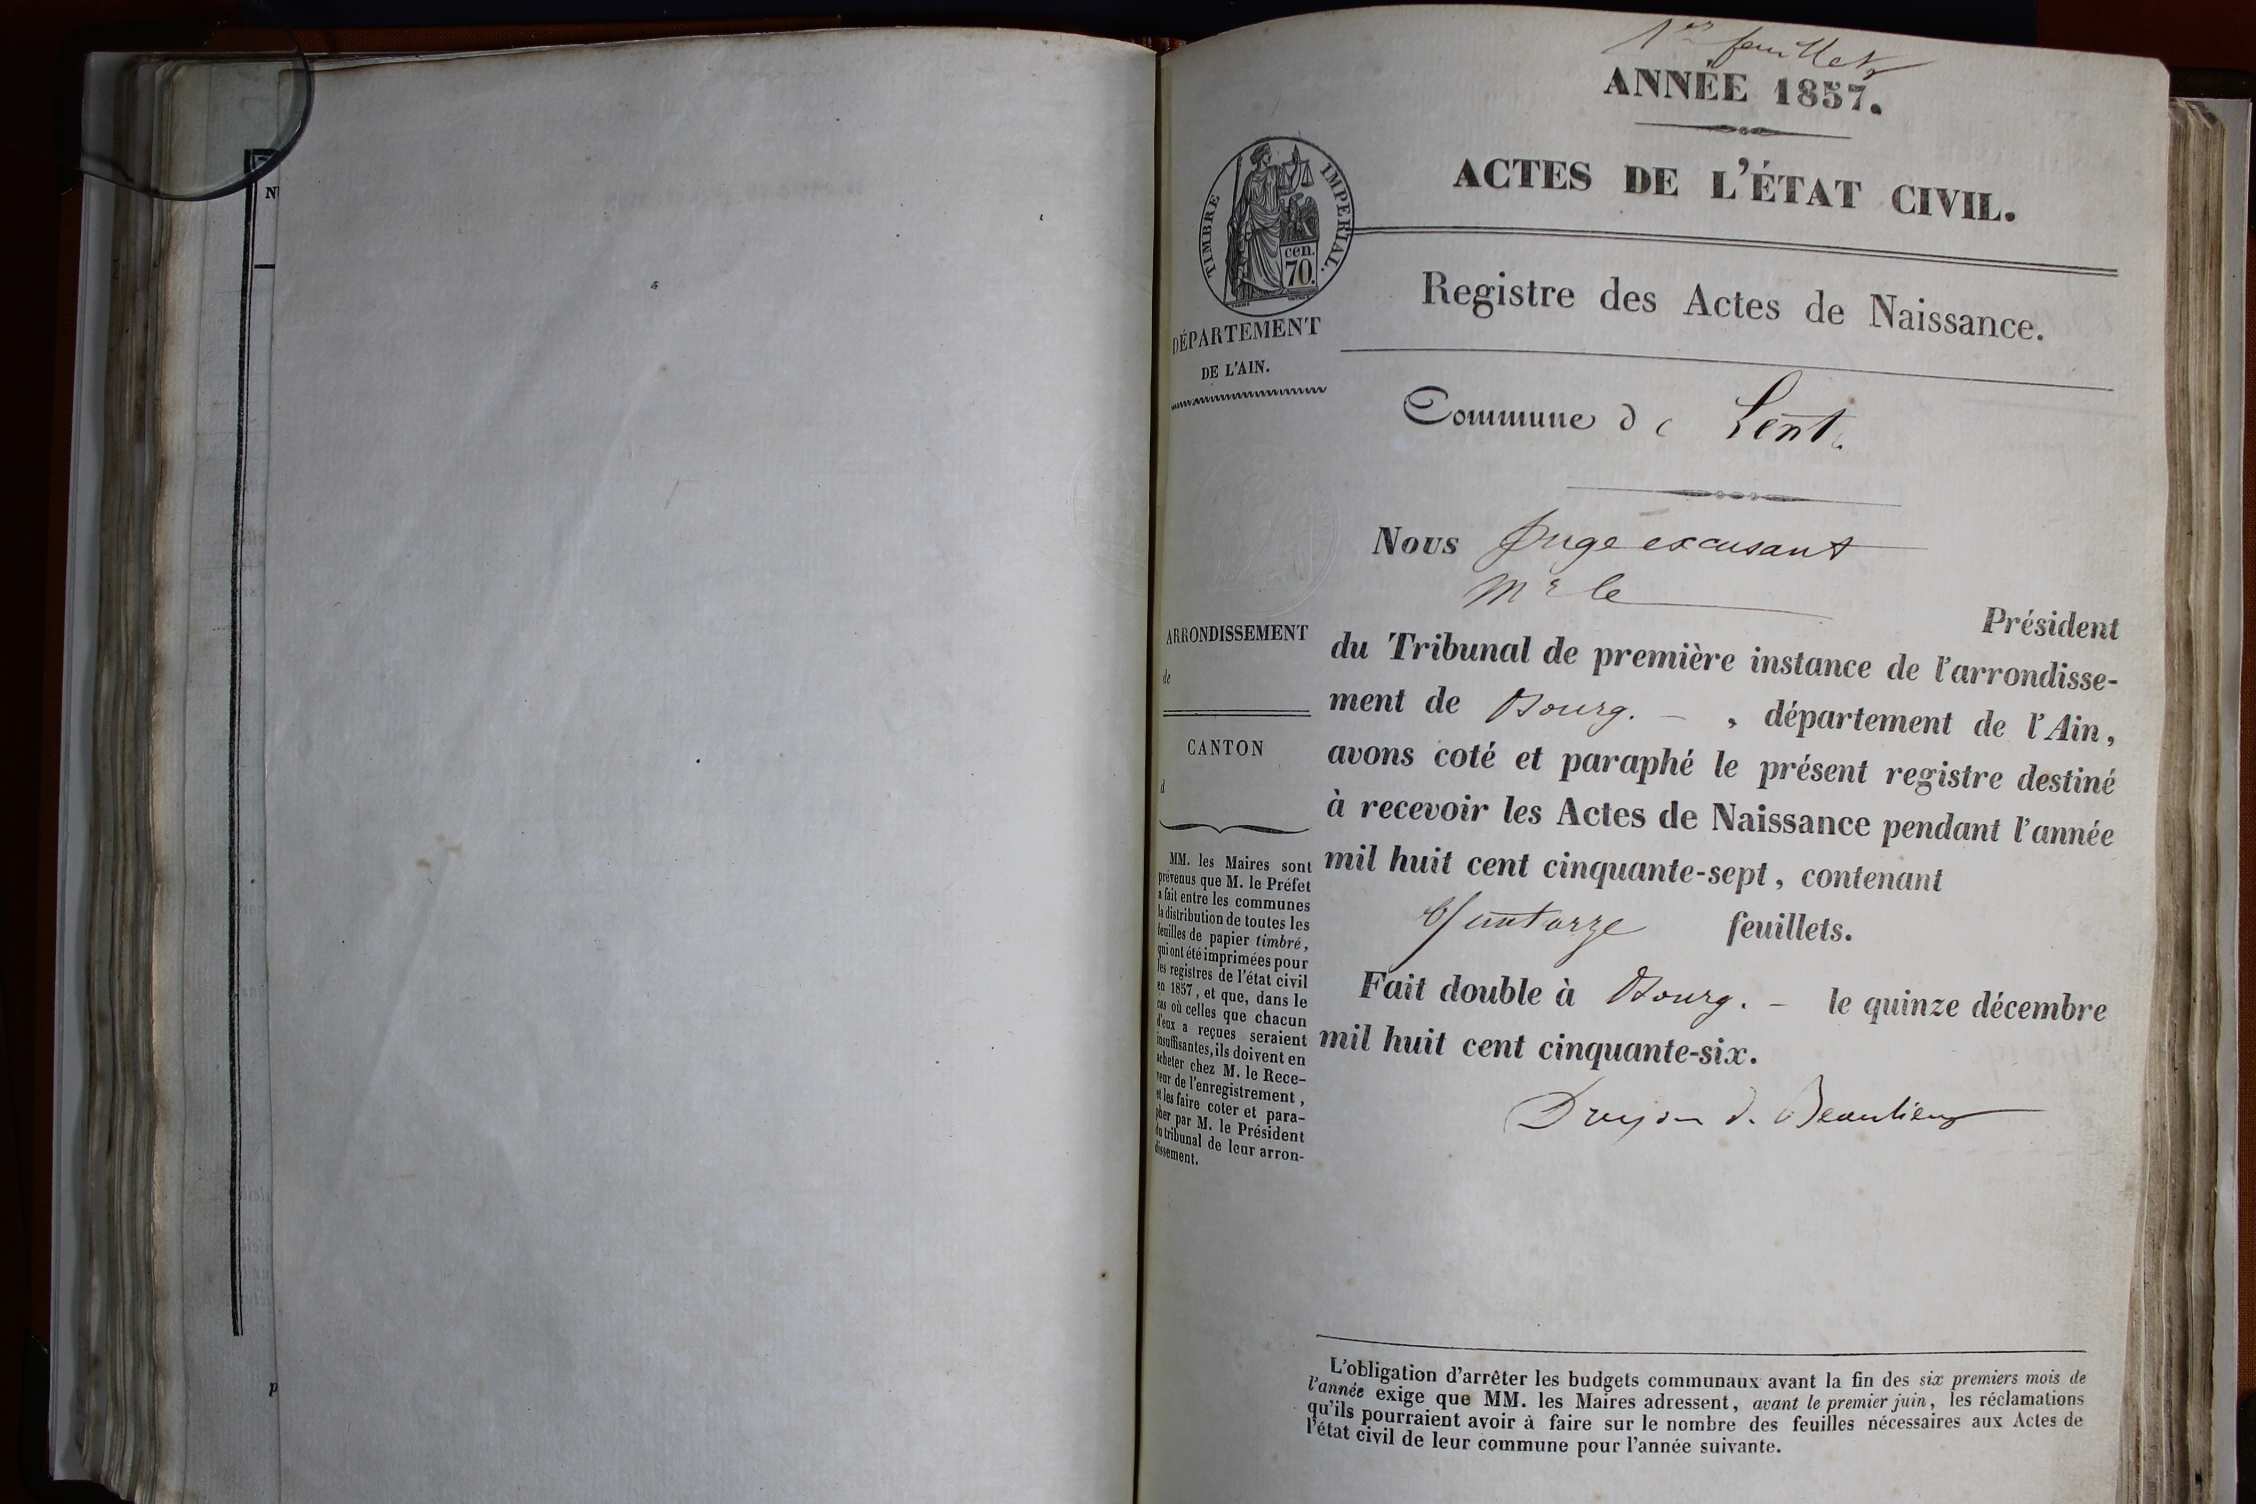 N
p
1er feuillet
ANNÉE 1857.
ACTES DE L'ÉTAT CIVIL.
TIMBRE IMPERIAL.
cen.
70.
Registre des Actes de Naissance.
DÉPARTEMENT
DE L'AIN.
Commune de Lent.
Nous Juge excusant
Mr le
Président
du Tribunal de première instance de l'arrondisse-
ment de Bourg. – , département de l'Ain,
avons coté et paraphé le présent registre destiné
à recevoir les Actes de Naissance pendant l'année
mil huit cent cinquante-sept, contenant
feuillets.
Fait double à Bourg. – le quinze décembre
mil huit cent cinquante-six.
Druyon d. Beaulieu
ARRONDISSEMENT
de
CANTON
d
MM. les Maires sont
prévenus que M. le Préfet
a fait entre les communes
la distribution de toutes les
feuilles de papier timbré,
qui ont été imprimées pour
les registres de l'état civil
en 1857, et que, dans le
cas où celles que chacun
d'eux a reçues seraient
insuffisantes, ils doivent en
acheter chez M. le Rece-
veur de l'enregistrement,
et les faire coter et para-
pher par M. le Président
du tribunal de leur arron-
dissement.
L'obligation d'arrêter les budgets communaux avant la fin des six premiers mois de
l'année exige que MM. les Maires adressent, avant le premier juin, les réclamations
qu'ils pourraient avoir à faire sur le nombre des feuilles nécessaires aux Actes de
l'état civil de leur commune pour l'année suivante.